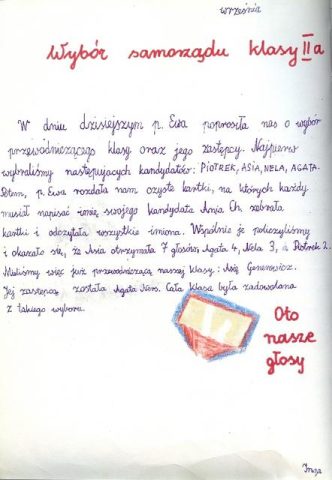 września
Wybór samorządu klasy II a
W dniu dzisiejszym p. Ewa poprosiła nas o wybór
przewodniczącego klasy oraz jego zastępcy. Najpierw
wybraliśmy następujących kandydatów: PIOTREK, ASIA, NELA, AGATA.
Potem, p. Ewa rozdała nam czyste kartki, na których każdy
musiał napisać imię swojego kandydata Ania Ch. zebrała
kartki i odczytała wszystkie imiona. Wspólnie je policzyliśmy
i okazało się, że Asia otrzymała 7 głosów, Agata 4, Nela 3, a Piotrek 2.
Mieliśmy więc już przewodniczącą naszej klasy: Asię
Jej zastępcą została Agata Cała klasa była zadowolona
z takiego wyboru.
Oto
nasze
głosy